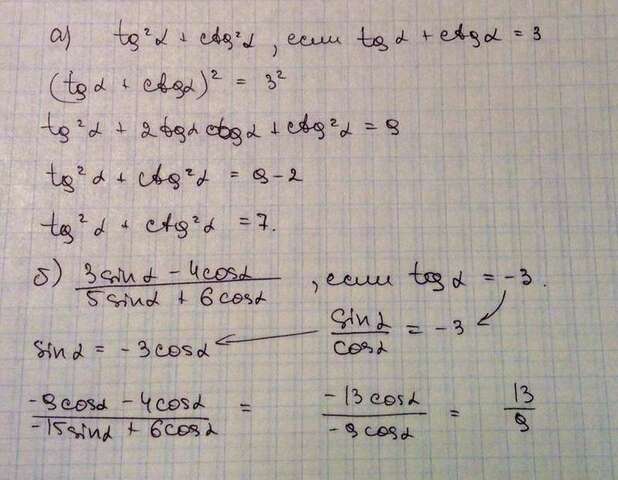 а) tg²α + ctg²α, если tgα + ctgα = 3
(tgα + ctgα)² = 3²
tg²α + 2tgα ctgα + ctg²α = 9
tg²α + ctg²α = 9-2
tg²α + ctg²α = 7.
б) (3sinα - 4cosα)/(5sinα + 6cosα), если tgα = -3.
sinα = -3cosα ← sinα/cosα = -3
(-9cosα - 4cosα)/(-15sinα + 6cosα) = (-13cosα)/(-9cosα) = 13/9